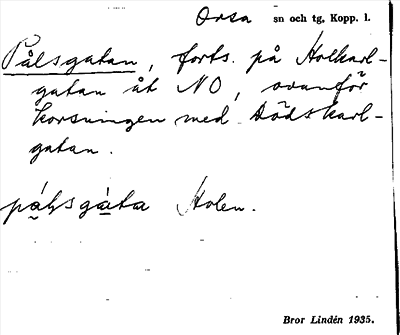 Orsa sn och tg, Kopp. l.
Pålsgatan, forts. på Holkarl-
gatan åt NO, ovanför
korsningen med Dödskarl-
gatan.
pål̥sgàta Holen.
Bror Lindén 1935.